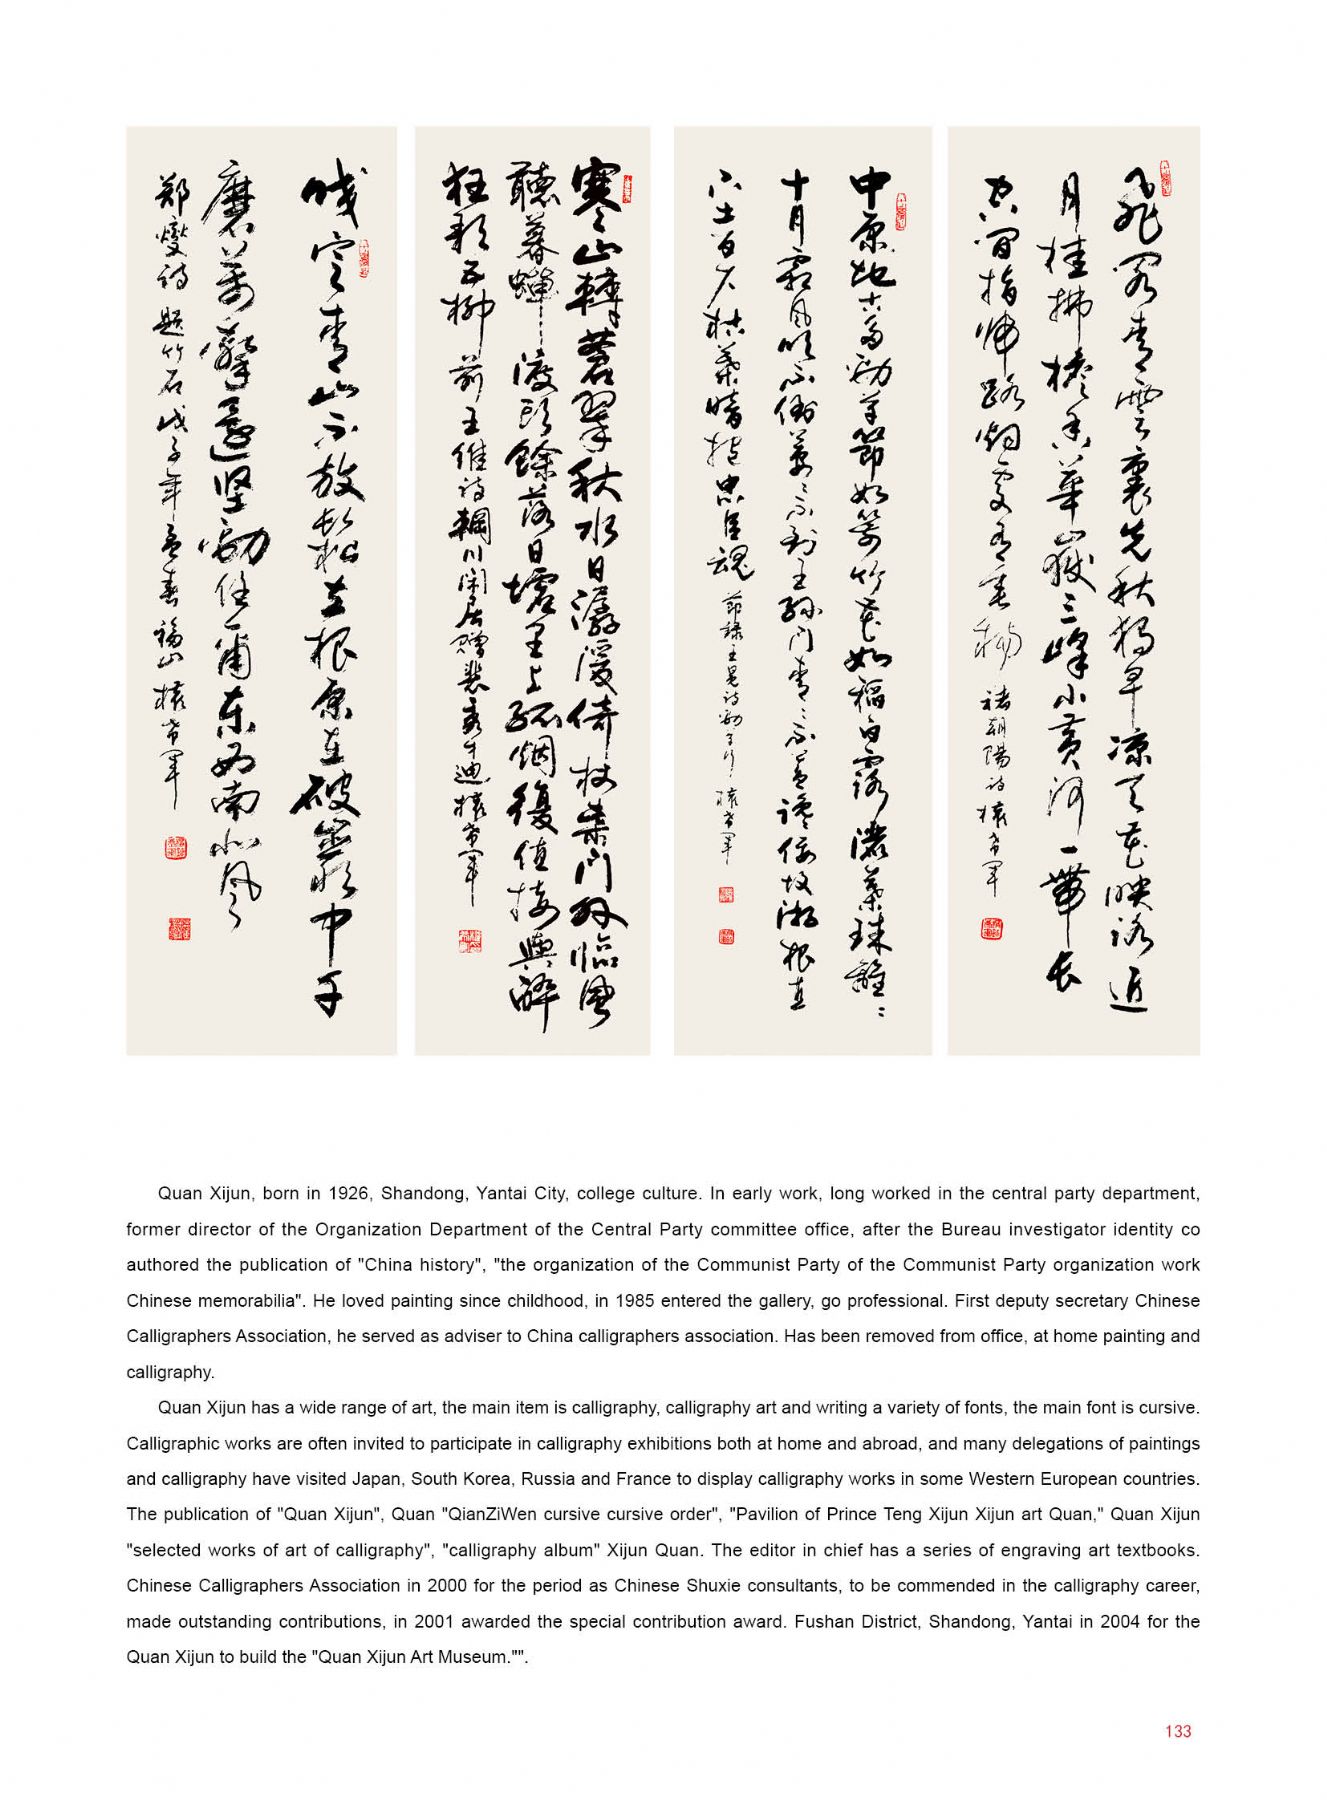 飛阁青雲裏先秋独早凉天花映窗近
月桂拂檐香華嶽三峰小黄河一帶长
空间指归路烟处有垂楊 褚朝陽诗 權希军
中原地古多劲草節如箭竹花如稻白露灑葉珠離々
十月霜风吹不倒萋々不到王孙门青々不蓋讒佞坟游根直
下土百尺枯荣暗抱忠臣魂 節録王冕诗劲草行 權希军
寒山轉蒼翠秋水日潺湲倚杖柴门外臨風
聽暮蟬渡头餘落日墟里上孤烟復值接輿醉
狂歌五柳前 王維诗輞川闲居贈裴秀才迪 權希军
咬定青山不放鬆立根原在破岩中千
磨萬擊還坚勁任爾东西南北风
郑燮诗 题竹石 戊子年孟春 福山 權希军
Quan Xijun, born in 1926, Shandong, Yantai City, college culture. In early work, long worked in the central party department,
former director of the Organization Department of the Central Party committee office, after the Bureau investigator identity co
authored the publication of "China history", "the organization of the Communist Party of the Communist Party organization work
Chinese memorabilia". He loved painting since childhood, in 1985 entered the gallery, go professional. First deputy secretary Chinese
Calligraphers Association, he served as adviser to China calligraphers association. Has been removed from office, at home painting and
calligraphy.
Quan Xijun has a wide range of art, the main item is calligraphy, calligraphy art and writing a variety of fonts, the main font is cursive.
Calligraphic works are often invited to participate in calligraphy exhibitions both at home and abroad, and many delegations of paintings
and calligraphy have visited Japan, South Korea, Russia and France to display calligraphy works in some Western European countries.
The publication of "Quan Xijun", Quan "QianZiWen cursive cursive order", "Pavilion of Prince Teng Xijun Xijun art Quan," Quan Xijun
"selected works of art of calligraphy", "calligraphy album" Xijun Quan. The editor in chief has a series of engraving art textbooks.
Chinese Calligraphers Association in 2000 for the period as Chinese Shuxie consultants, to be commended in the calligraphy career,
made outstanding contributions, in 2001 awarded the special contribution award. Fushan District, Shandong, Yantai in 2004 for the
Quan Xijun to build the "Quan Xijun Art Museum."".
133